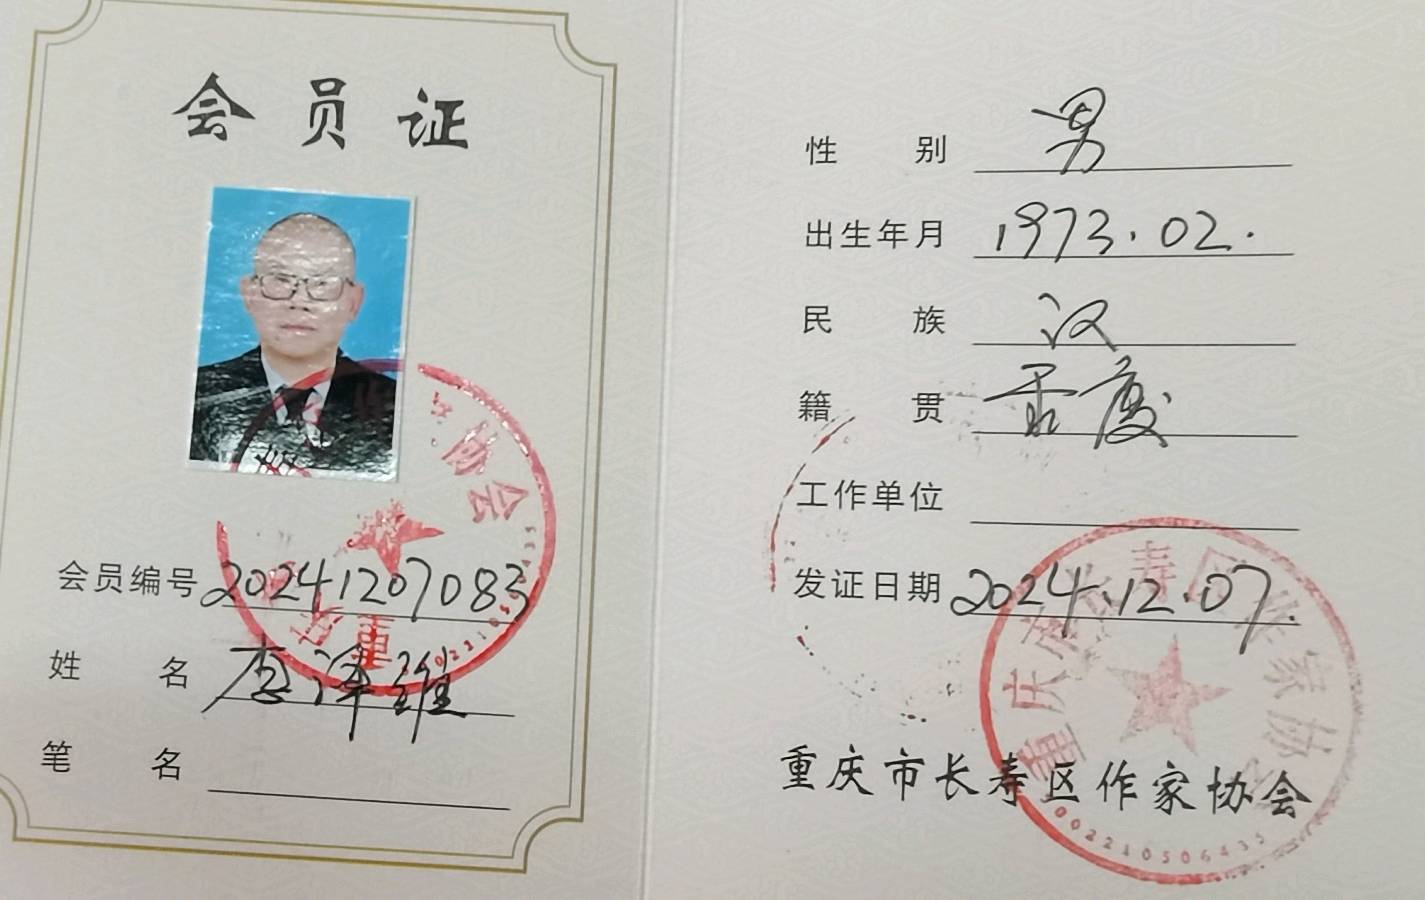 会员证
会员编号 20241207083
姓名 李泽维
笔名
性别 男
出生年月 1973.02.
民族 汉
籍贯 重庆
工作单位
发证日期 2024.12.07.
重庆市长寿区作家协会
重庆 协会
重庆市长寿区作家协会